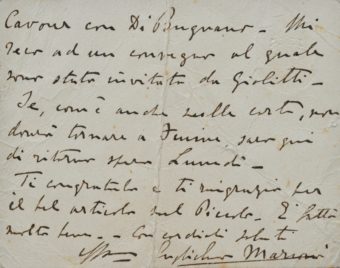 Cavour con Di Brugnano – Mi
reco ad un convegno al quale
sono stato invitato da Giolitti –
Se, com'è anche nelle carte, non
dovrò tornare a Fiume, sarò qui
di ritorno spero Lunedì –
Ti congratulo e ti ringrazio per
il bel articolo sul Piccolo. È fatto
molto bene. – Con cordiali saluti
Guglielmo Marconi